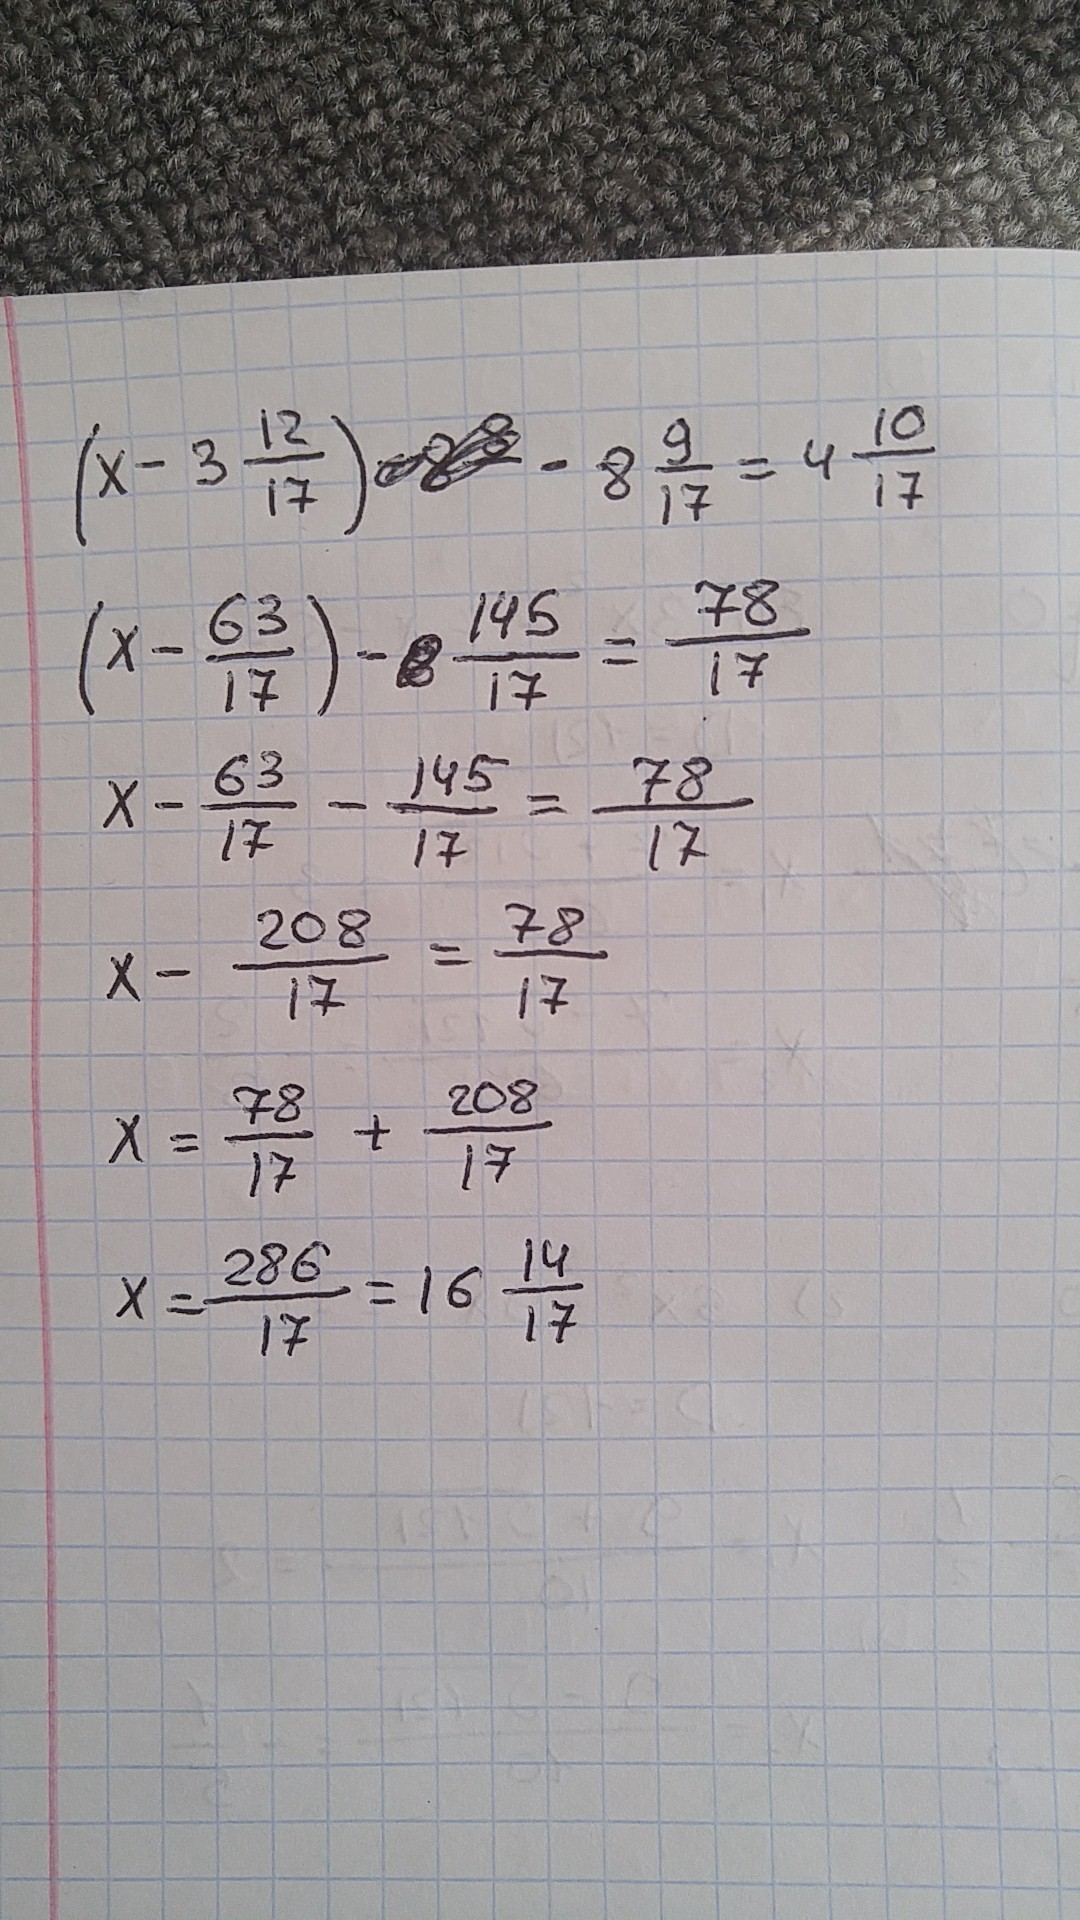 (x - 3 12/17) - 8 9/17 = 4 10/17
(x - 63/17) - 145/17 = 78/17
x - 63/17 - 145/17 = 78/17
x - 208/17 = 78/17
x = 78/17 + 208/17
x = 286/17 = 16 14/17